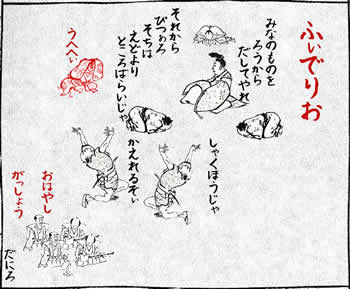 ふぃでりお
みなのものを
ろうから
だしてやれ
それから
ぴつぁろ
そちは
えどより
ところばらいじゃ
うへへぃ
しゃくほうじゃ
かえれるぞぃ
おはやし
がっしょう
だにろ